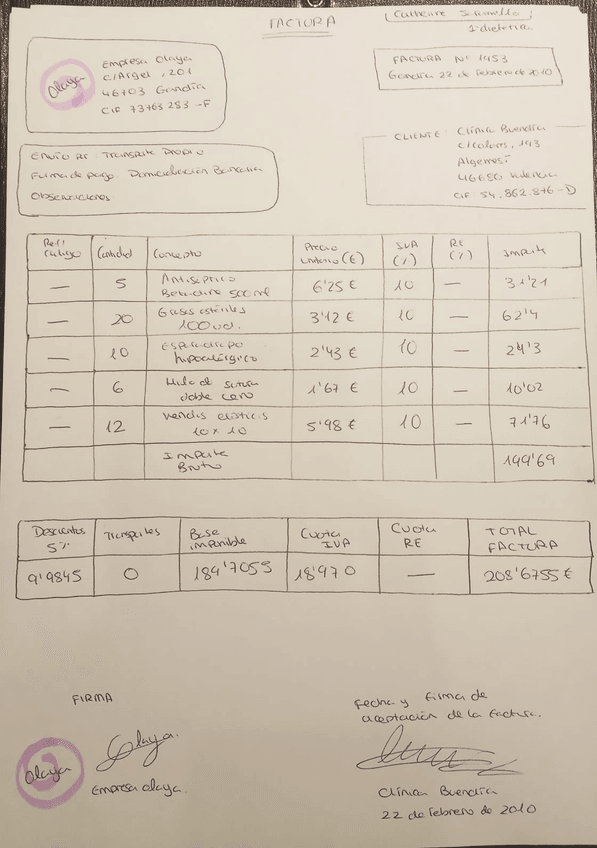 FACTURA
Catherine Jaramillo
1 dietética
Olaya
Empresa Olaya
C/Argel, 201
46703 Gandía
CIF 73763 283 -F
FACTURA Nº 1453
Gandía 22 de Febrero de 2010
ENVÍO POR: Transporte propio
Forma de pago: Domiciliación Bancaria
Observaciones
CLIENTE: Clínica Buendía
C/colores, 143
Algemesí
46680 Valencia
CIF 54.862.876-D
Ref/ Código Cantidad Concepto Precio Unitario (€) IVA (%) RE (%) Importe
— 5 Antiséptico Betadine 500ml 6'25 € 10 — 31'21
— 20 Gasas estériles 100ud. 3'12 € 10 — 62'4
— 10 Esparadrapo hipoalérgico 2'43 € 10 — 24'3
— 6 Hilo de sutura doble cero 1'67 € 10 — 10'02
— 12 Vendas elásticas 10x10 5'98 € 10 — 71'76
Importe Bruto 199'69
Descuentos 5% Transportes Base imponible Cuota IVA Cuota RE TOTAL FACTURA
9'9845 0 189'7055 18'970 — 208'6755 €
FIRMA
Olaya
Olaya.
Empresa Olaya.
Fecha y firma de
aceptación de la factura.
Clínica Buendía
22 de Febrero de 2010